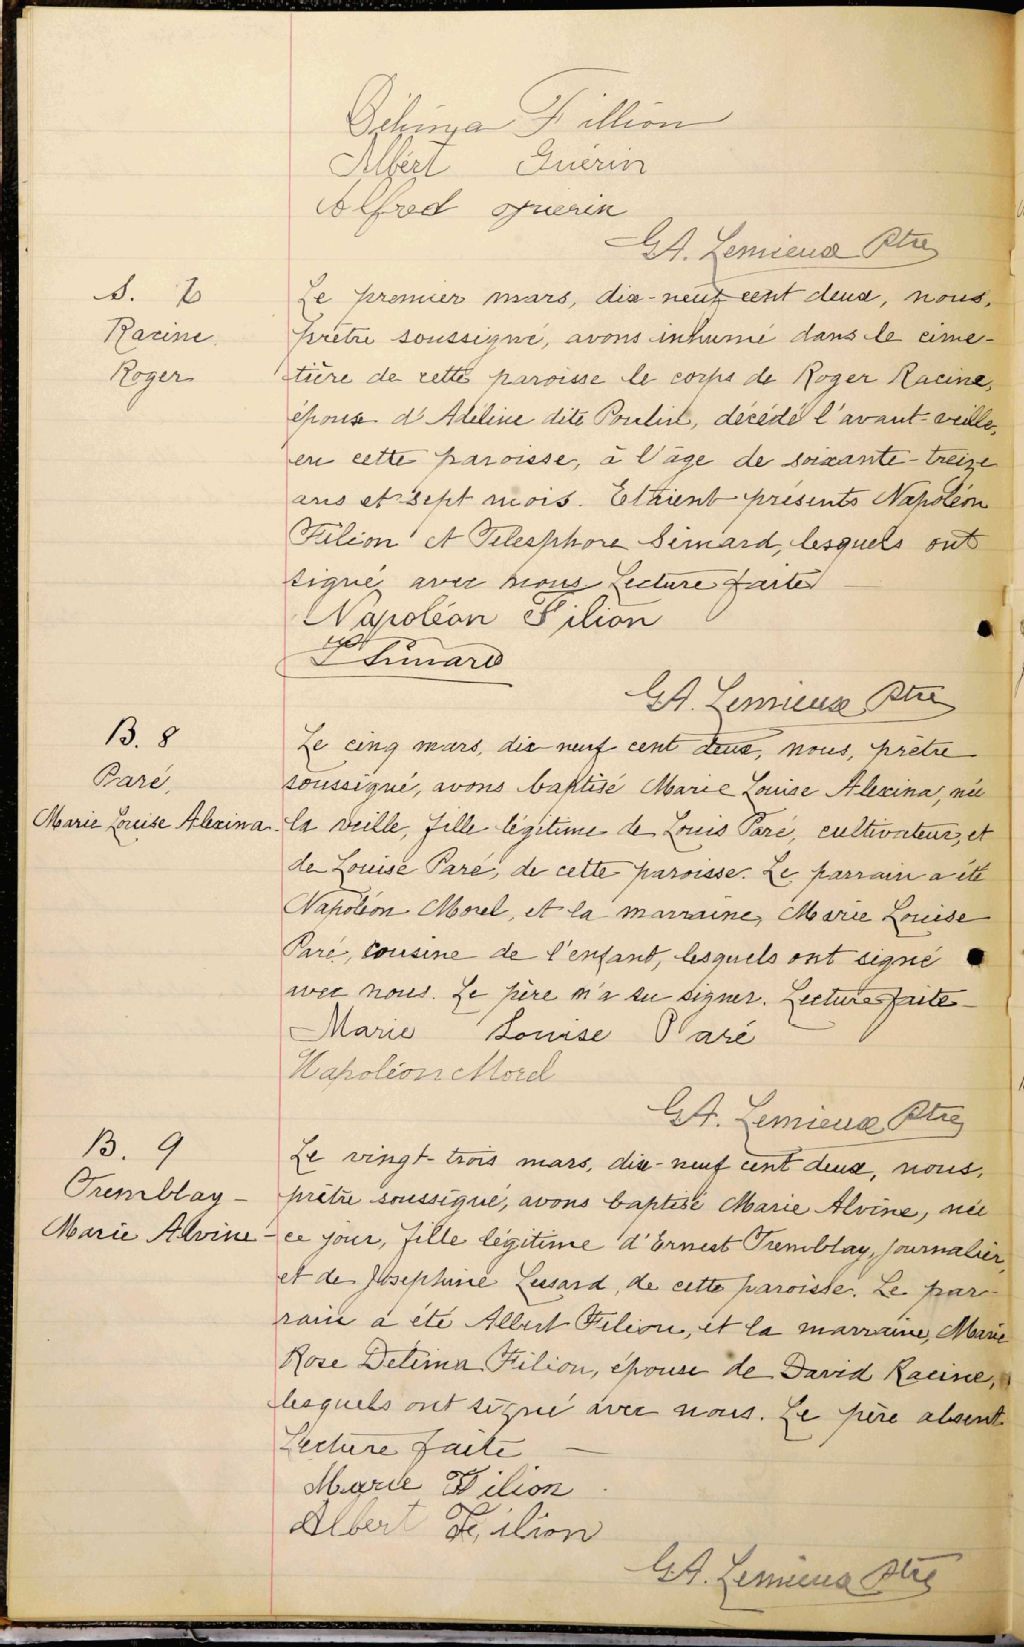 Délima Fillion
Albért Guérin
Alfred Guérin
GA. Lemieux Ptre
S.
Racine
Roger
Le premier mars, dix-neuf cent deux, nous,
prêtre soussigné, avons inhumé dans le cime-
tière de cette paroisse le corps de Roger Racine,
époux d'Adeline dite Poulin, décédé l'avant-veille,
en cette paroisse, à l'âge de soixante-treize
ans et sept mois. Etaient présents Napoléon
Filion et Telesphore Simard, lesquels ont
signé avec nous Lecture faite
Napoléon Filion
T Simard
GA. Lemieux Ptre
B. 8
Paré,
Marie Louise Alexina
Le cinq mars, dix-neuf cent deux, nous, prêtre
soussigné, avons baptisé Marie Louise Alexina, née
la veille, fille légitime de Louis Paré, cultivateur, et
de Louise Paré, de cette paroisse. Le parrain a été
Napoléon Morel, et la marraine, Marie Louise
Paré, cousine de l'enfant, lesquels ont signé
avec nous. Le père n'a su signer. Lecture faite
Marie Louise Paré
Napoléon Morel
GA. Lemieux Ptre
B. 9
Tremblay -
Marie Alvine -
Le vingt-trois mars, dix-neuf cent deux, nous,
prêtre soussigné, avons baptisé Marie Alvine, née
ce jour, fille légitime d'Ernest Tremblay, journalier,
et de Joséphine Lessard, de cette paroisse. Le par-
rain a été Albert Filion, et la marraine, Marie
Rose Delima Filion, épouse de David Racine,
lesquels ont signé avec nous. Le père absent
Lecture faite -
Marie Filion
Albert Filion
GA. Lemieux Ptre